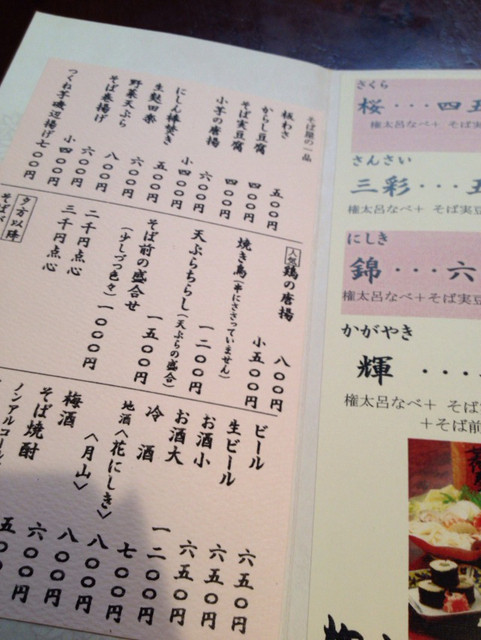 そば屋の一品
板わさ 五〇〇円
からし豆腐 四〇〇円
そば実豆腐 四〇〇円
小芋の唐揚 六〇〇円
小四〇〇円
にしん棒焚き 五〇〇円
生麩田楽 六〇〇円
野菜天ぷら 八〇〇円
そば巻揚げ 六〇〇円
小四〇〇円
つくね芋磯辺揚げ 七〇〇円
人気 鶏の唐揚 八〇〇円
小五〇〇円
焼き鳥(串にささっていません)
一二〇〇円
天ぷらちらし(天ぷらの盛合)
そば前の盛合せ 一五〇〇円
(少しづつ色々) 一〇〇〇円
二千円点心
三千円点心
夕方以降
そばが
ビール 六五〇円
生ビール 六五〇円
お酒小 六五〇円
お酒大 一二〇〇円
冷酒 七〇〇円
地酒〈花にしき〉 八〇〇円
〈月山〉 八〇〇円
梅酒 六〇〇円
そば焼酎 五〇
ノンアルコール
さくら
桜・・・四五
権太呂なべ+ そば実
さんさい
三彩・・・五
権太呂なべ+そば実豆
にしき
錦・・・六
権太呂なべ+そば実豆
かがやき
輝・・・・
権太呂なべ+ そば
+そば前